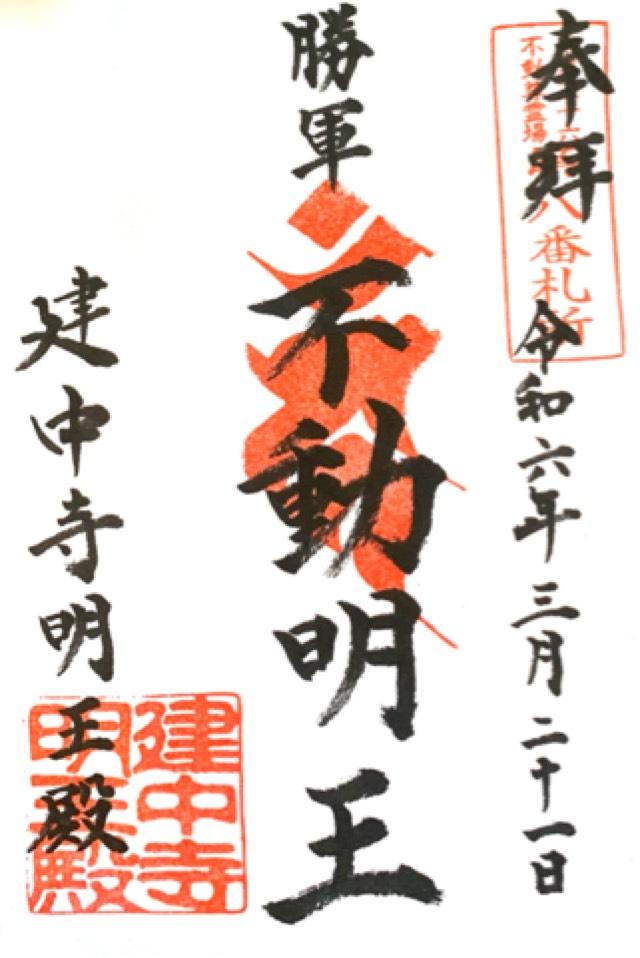 奉拝
令和六年三月二十一日
八番札所
勝軍
不動明王
建中寺明王殿
建中寺
明王殿